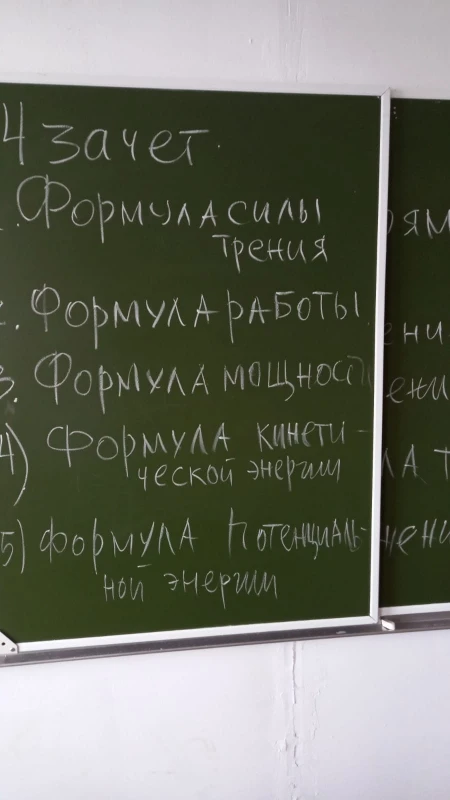 4 зачет.
1. Формула силы
трения
2. Формула работы
3. Формула мощност
4) Формула кинети-
ческой энергии
5) Формула потенциаль-
ной энергии
ени
ла т
нени